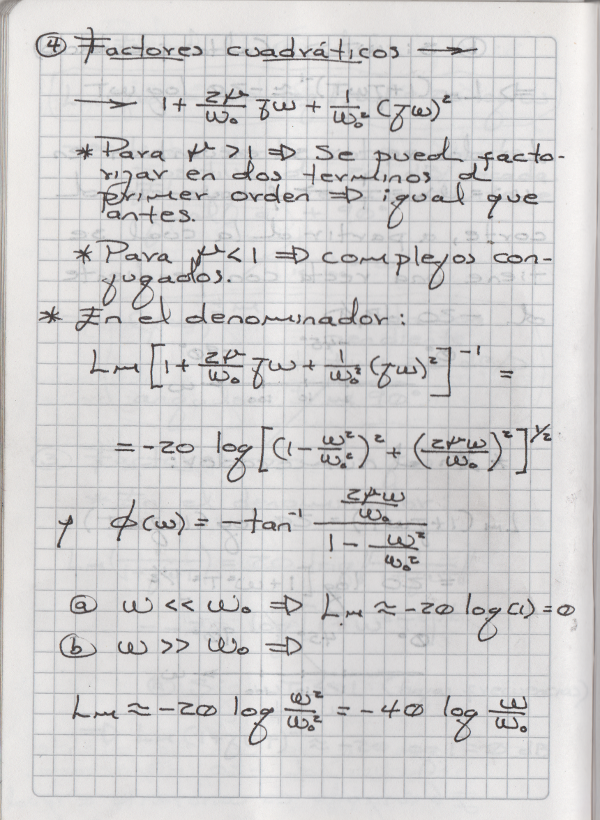 ④ Factores cuadráticos →
→ 1 + 2μ/ω₀ jω + 1/ω₀² (jω)²
* Para μ > 1 ⇒ Se pued facto-
rizar en dos terminos d
primer orden ⇒ igual que
antes.
* Para μ < 1 ⇒ complejos con-
jugados.
* En el denominador:
Lm [1 + 2μ/ω₀ jω + 1/ω₀² (jω)²]⁻¹ =
= -20 log [(1 - ω²/ω₀²)² + (2μω/ω₀)²]^1/2
y ϕ(ω) = -tan⁻¹ (2μω/ω₀)/(1 - ω²/ω₀²)
ⓐ ω << ω₀ ⇒ Lm ≈ -20 log(1) = 0
ⓑ ω >> ω₀ ⇒
Lm ≈ -20 log ω²/ω₀² = -40 log ω/ω₀